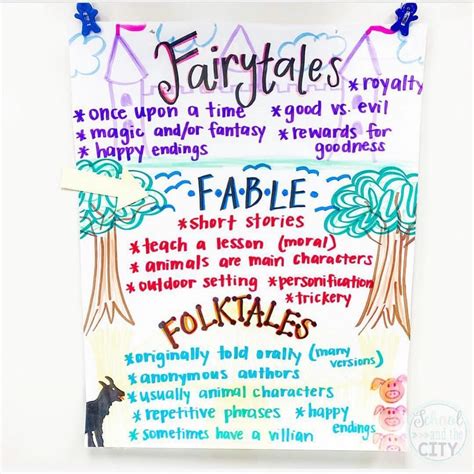 Fairytales
*royalty
*once upon a time *good vs. evil
*magic and/or fantasy *rewards for
goodness
*happy endings
FABLE
*short stories
*teach a lesson (moral)
*animals are main characters
*outdoor setting *personification
*trickery
FOLKTALES
*originally told orally (many
versions)
*anonymous authors
*usually animal characters
*repetitive phrases *happy
endings
*sometimes have a villian
School
and the
CITY